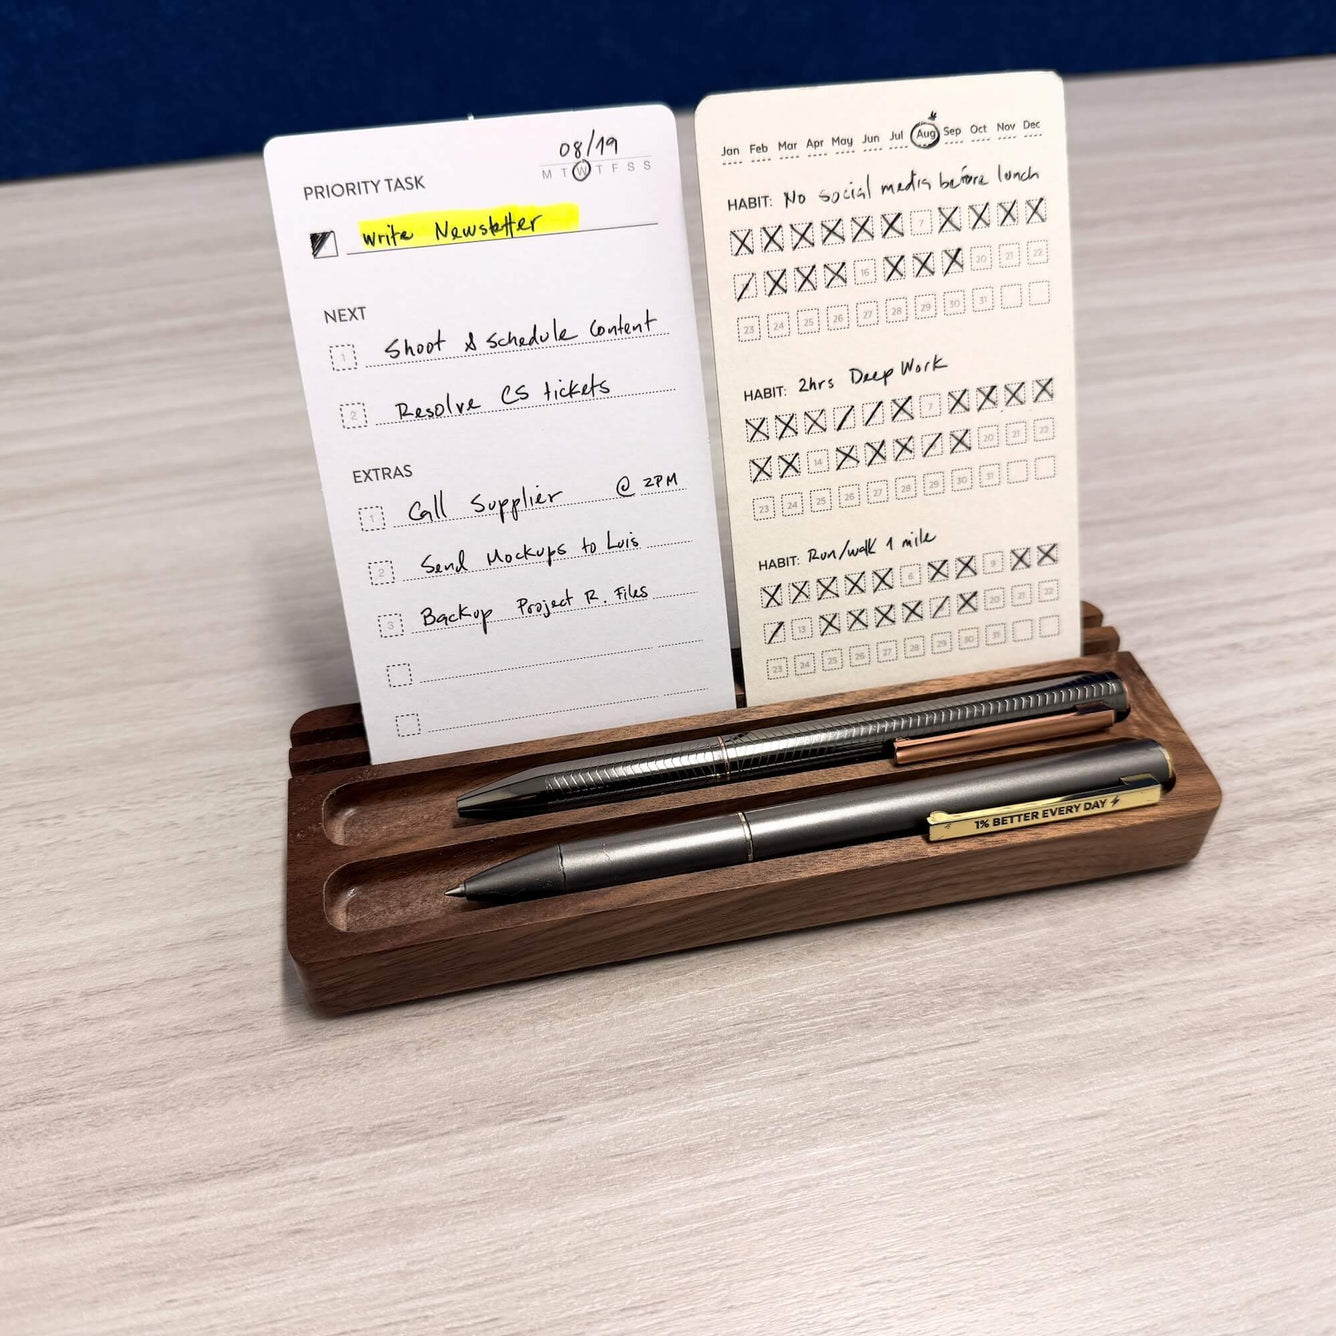 08/19
M T W T F S S
PRIORITY TASK
Write Newsletter
NEXT
1 Shoot & Schedule Content
2 Resolve CS tickets
EXTRAS
1 Call Supplier @ 2PM
2 Send Mockups to Luis
3 Backup Project R. Files
Jan Feb Mar Apr May Jun Jul Aug Sep Oct Nov Dec
HABIT: No social media before lunch
7
16 20 21 22
23 24 25 26 27 28 29 30 31
HABIT: 2hrs Deep Work
7
14 20 21 22
23 24 25 26 27 28 29 30 31
HABIT: Run/walk 1 mile
6 9
13 20 21 22
23 24 25 26 27 28 29 30 31
1% BETTER EVERY DAY